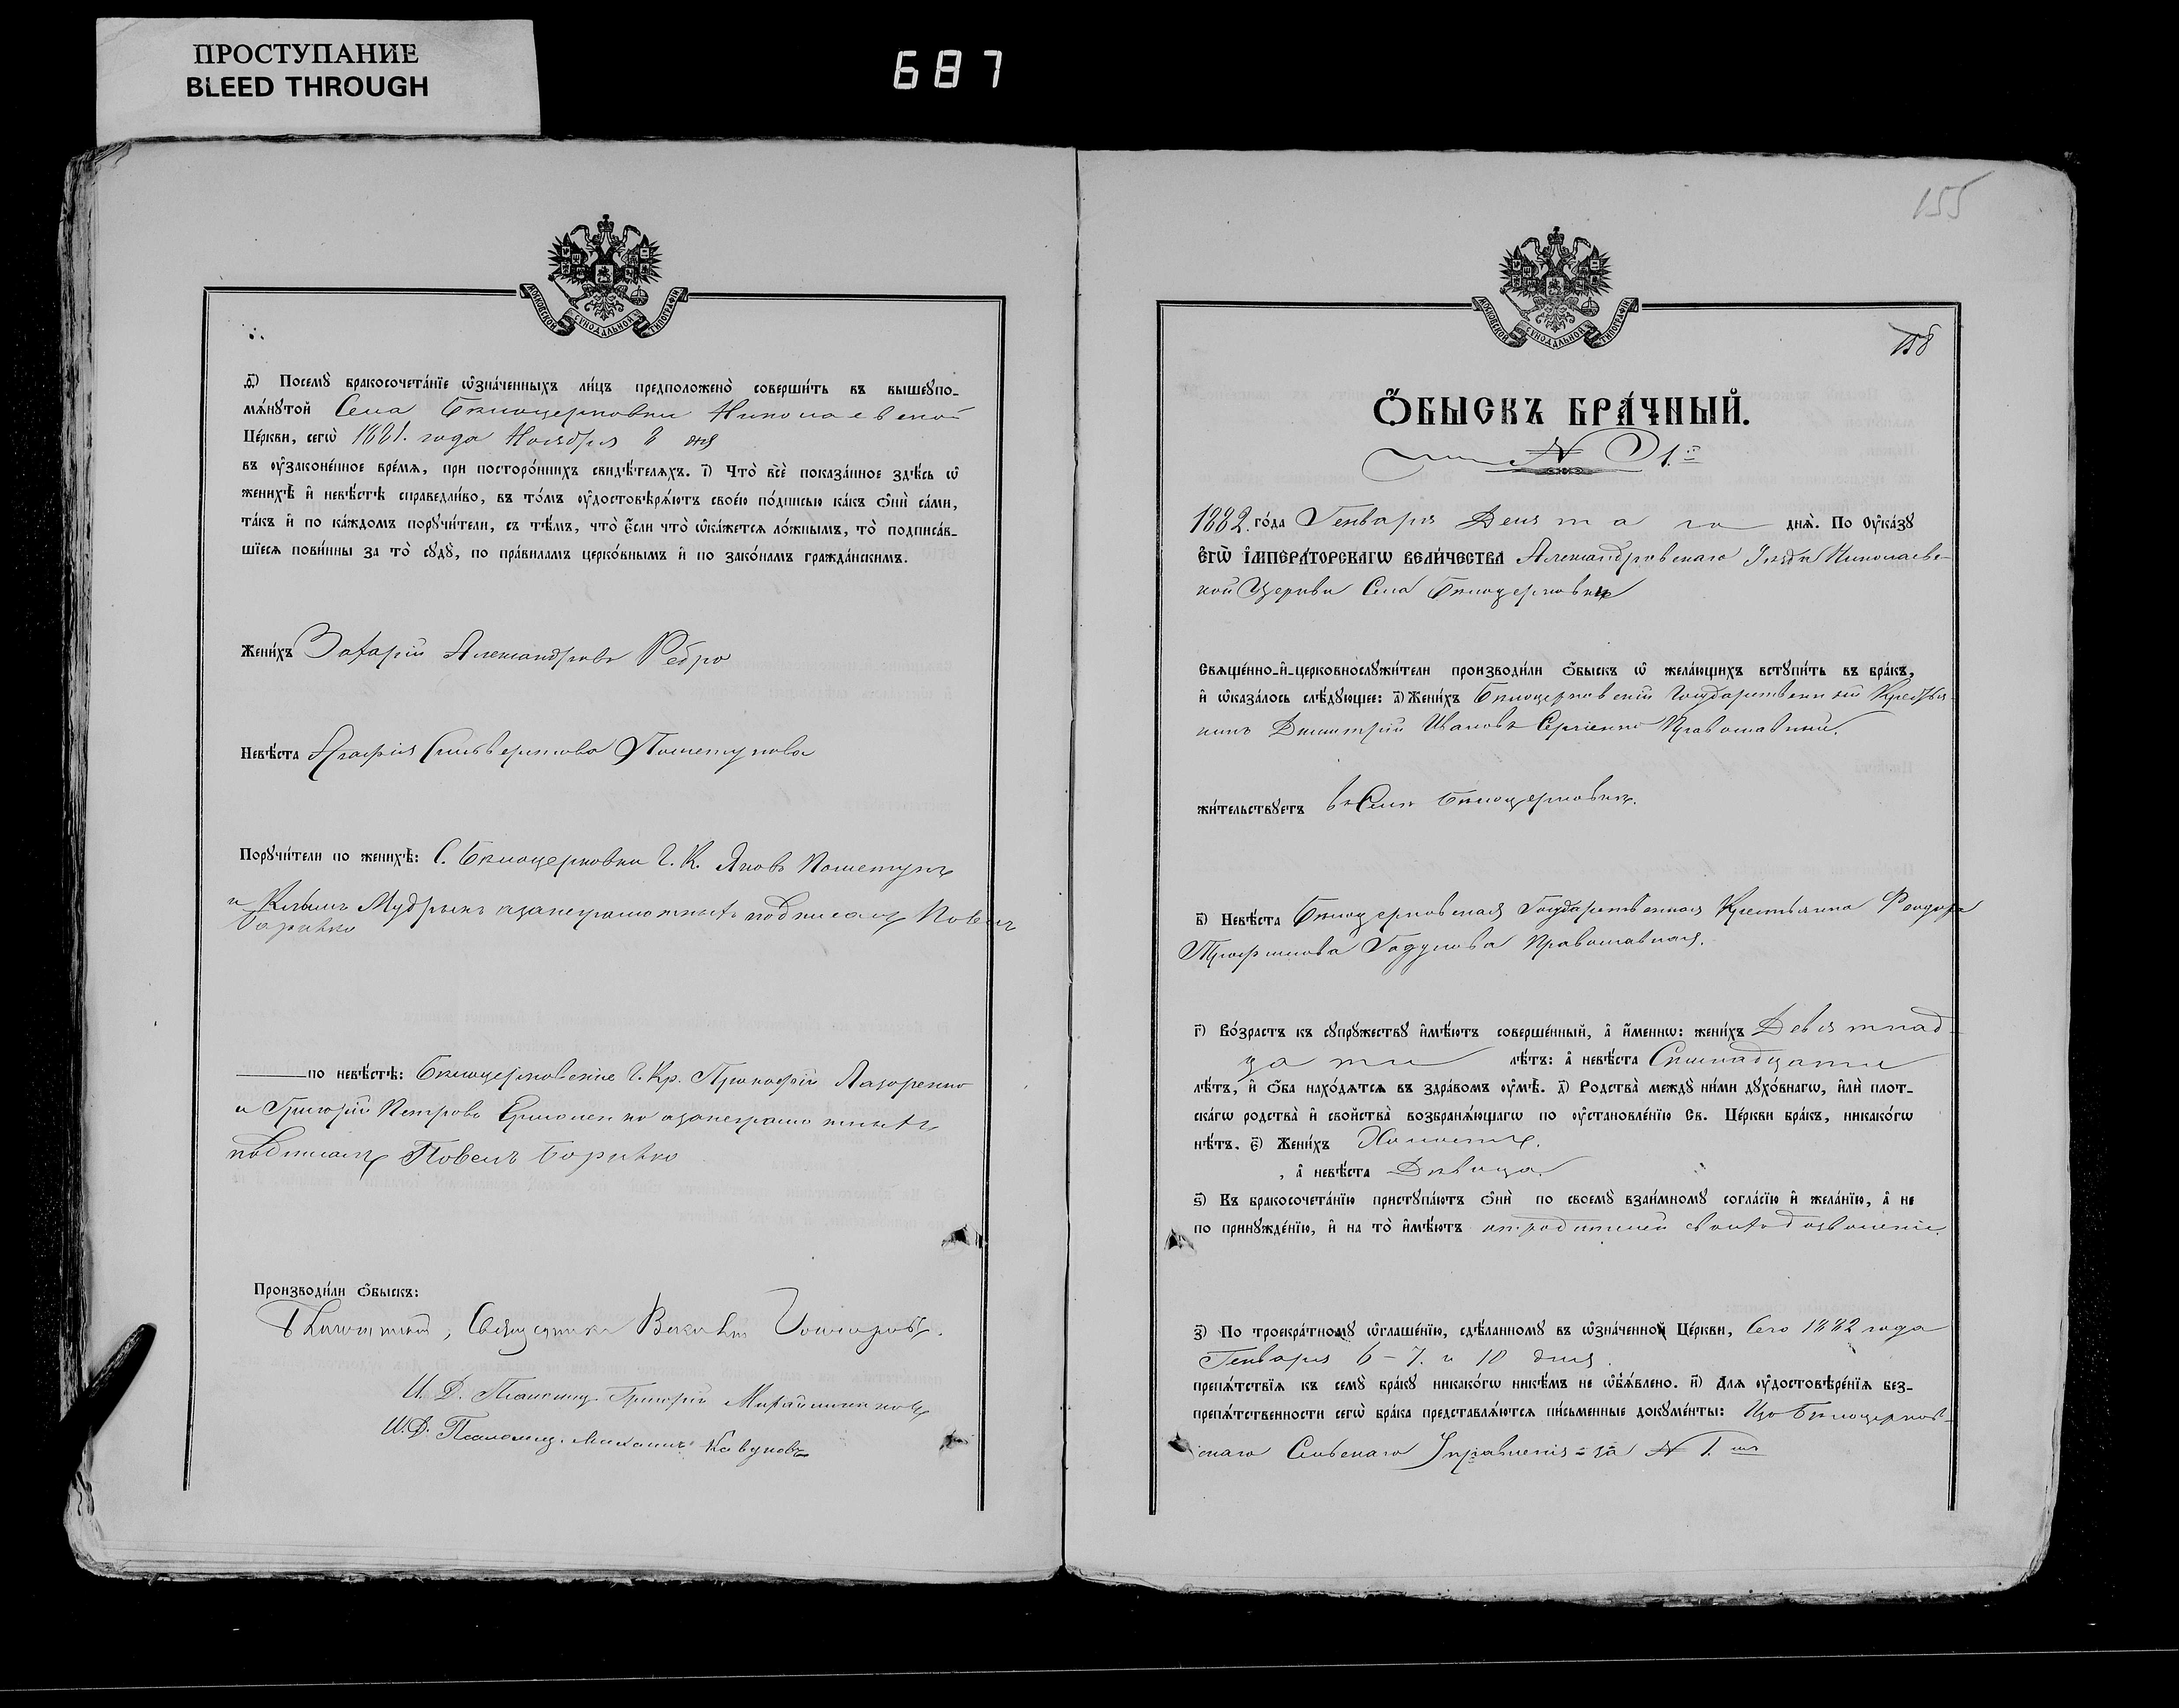 ПРОСТУПАНИЕ
BLEED THROUGH
687
МОСКОВСКОЙ СѴНОДАЛЬНОЙ ТИПОГРАФІИ
д҃) Посемꙋ̀ бракосочета́нїе ѡ҆зна́ченныхъ ли́цъ предположено̀ соверши́ть въ вышеꙋпо-
мѧ́нꙋтой Села Бѣлоцерковки Николаевской
Це́ркви, сегѡ̀ 1881. года Ноября 8 дня
въ ᲂу҆законе́нное вре́мѧ, при посторо́ннихъ свидѣ́телѧхъ. і҃) Что̀ всѐ показа́нное здѣ́сь ѡ҆
женихѣ̀ и҆ невѣ́стѣ справедли́во, въ то́мъ ᲂу҆достовѣрѧ́ютъ свое́ю по́дписью ка́къ ѻ҆нѝ са́ми,
та́къ и҆ по ка́ждомъ порꙋчи́тели, съ тѣ́мъ, что̀ є҆́сли что̀ ѡ҆ка́жетсѧ ло́жнымъ, то̀ подписа́в-
шїесѧ пови́нны за то̀ сꙋдꙋ̀, по пра́виламъ церко́внымъ и҆ по зако́намъ гражда́нскимъ.
Жени́хъ Захарій Александровъ Ребро
Невѣ́ста Агафія Сильвестрова Пометунова
Порꙋчи́тели по женихѣ̀: С. Бѣлоцерковки Г. К. Яковъ Пометунъ
и Климъ Мудрыкъ азанеграмотныхъ подписалъ Павелъ
Борывко
по невѣ́стѣ: Бѣлоцерковскіе Г. Кр. Прокофій Лазоренко
и Григорій Петровъ Ермоленко азанеграмотныхъ
подписалъ Павелъ Борывко
Производи́ли ѻ҆́быскъ:
Священникъ
И. Д. Псаломщ. Григорій Михайличенковъ
И. Д. Псаломщ. Михаилъ Кавуновъ
155
МОСКОВСКОЙ СѴНОДАЛЬНОЙ ТИПОГРАФІИ
158
Ѻ҆́БЫСКЪ БРА́ЧНЫЙ.
№ 1.й
1882. го́да Генваря Десятаго днѧ̀. По ᲂу҆ка́зꙋ
Є҆ГѠ̀ И҆МПЕРА́ТОРСКАГѠ ВЕЛИ́ЧЕСТВА Александровскаго Уѣзда Николаевс-
кой Церкви Села Бѣлоцерковки
Свѧще́нно-и҆-церковнослꙋжи́тели производи́ли ѻ҆́быскъ ѡ҆ жела́ющихъ встꙋпи́ть въ бра́къ,
и҆ ѡ҆каза́лось слѣ́дꙋющее: а҃) Жени́хъ Бѣлоцерковскій Государственный Крестья-
нинъ Димитрій Ивановъ Сергіенко Православный.
жи́тельствꙋетъ въ Селѣ Бѣлоцерковкѣ.
в҃) Невѣ́ста Бѣлоцерковская Государственная Крестьянка Феодора
Трофимова Гадунова Православная.
г҃) Во́зрастъ къ сꙋпрꙋ́жествꙋ и҆мѣ́ютъ соверше́нный, а҆ и҆́меннѡ: жени́хъ Девятнад-
цати лѣ́тъ: а҆ невѣ́ста Семнадцати
лѣ́тъ, и҆ ѻ҆́ба нахо́дѧтсѧ въ здра́вомъ ᲂу҆мѣ̀. д҃) Родства̀ междꙋ̀ ни́ми дꙋхо́внагѡ, и҆лѝ плот-
ска́гѡ родства̀ и҆ свойства̀ возбранѧ́ющагѡ по ᲂу҆становле́нїю Св. Це́ркви бра́къ, никако́гѡ
нѣ́тъ. є҃) Жени́хъ Холостъ.
, а҆ невѣ́ста Дѣвица.
ѕ҃) Къ бракосочета́нїю пристꙋпа́ютъ ѻ҆нѝ по своемꙋ̀ взаи́мномꙋ согла́сїю и҆ жела́нїю, а҆ не
по принꙋжде́нїю, и҆ на то̀ и҆мѣ́ютъ отродителей своихъ дозволеніе.
з҃) По троекра́тномꙋ ѡ҆глаше́нїю, сдѣ́ланномꙋ въ ѡ҆зна́ченной Це́ркви, Сего 1882 года
Генваря 6 – 7. и 10 дня.
препѧ́тствїѧ къ семꙋ̀ бра́кꙋ никако́гѡ никѣ́мъ не ѡ҆б̾ѧ́влено. и҃) Длѧ ᲂу҆достовѣре́нїѧ без-
препѧ́тственности сегѡ̀ бра́ка представлѧ́ютсѧ пи́сьменные докꙋме́нты: Изъ Бѣлоцерков-
скаго Сельскаго Управленія = за № 1.мъ